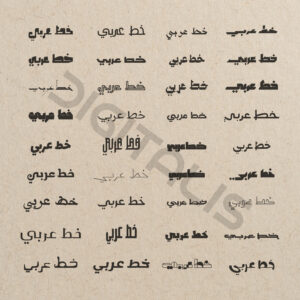 خط عربي خط عربي خط عربي خط عربي
خط عربي خط عربي خط عربي خط عربي
خط عربي خط عربي خط عربي خط عربي
خط عربي خط عربي خط عربي خط عربي
خط عربي خط عربي خط عربي خط عربي
خط عربي خط عربي خط عربي خط عربي
خط عربي خط عربي خط عربي خط عربي
خط عربي خط عربي خط عربي خط عربي
خط عربي خط عربي خط عربي خط عربي
DIGITALIS